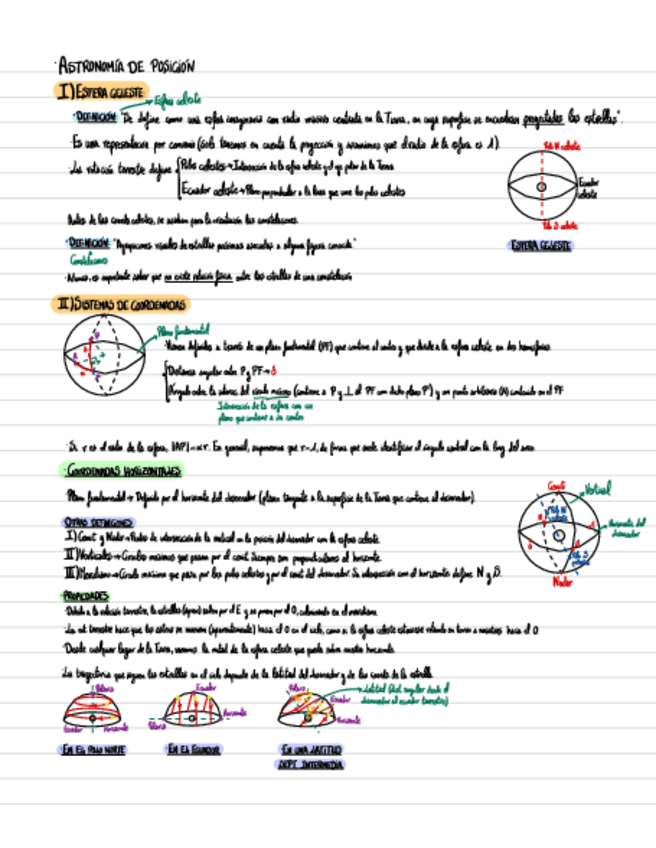 ·ASTRONOMÍA DE POSICIÓN
I) ESFERA CELESTE
Esfera celeste
·DEFINICIÓN: "Se define como una esfera imaginaria con radio masivo centrada en la Tierra, en cuya superficie se encuentran proyectadas las estrellas".
·Es una representación por convenio (solo tenemos en cuenta la proyección y asumimos que el radio de la esfera es 1).
·La rotación terrestre define
Polos celestes→Intersección de la esfera celeste y el eje polar de la Tierra
Ecuador celeste→Plano perpendicular a la línea que une los polos celestes
Polo N celeste
Ecuador celeste
Polo S celeste
ESFERA CELESTE
Antes de las coords celestes, se usaban para la orientación las constelaciones.
·DEFINICIÓN: "Agrupaciones visuales de estrellas próximas asociadas a alguna figura conocida"
Constelaciones
·Ahora, es importante saber que no existe relación física entre las estrellas de una constelación
II) SISTEMAS DE COORDENADAS
Plano fundamental
·Vienen definidos a través de un plano fundamental (PF) que contiene al centro y que divide a la esfera celeste en dos hemisferios.
Distancia angular entre P y PF→
Ángulo entre la interse. del círculo máximo (contiene a P y ⊥ al PF con dicho plano P') y un punto arbitrario (A) contenido en el PF
Intersección de la esfera con un
plano que contiene a su centro
·Si r es el radio de la esfera, En general, suponemos que r=1, de forma que suele identificar el ángulo central con la long del arco
·COORDENADAS HORIZONTALES
·Plano fundamental→ Definido por el horizonte del observador (plano tangente a la superficie de la Tierra que contiene al observador).
Cenit
Vertical
Polo N celeste
Horizonte del observador
Polo S celeste
Nadir
OTRAS DEFINICIONES
I) Cenit y Nadir→Puntos de intersección de la vertical en la posición del observador con la esfera celeste.
II) Verticales→Círculos máximos que pasan por el cenit. Siempre son perpendiculares al horizonte.
III) Meridiano→Círculo máximo que pasa por los polos celestes y por el cenit del observador. Su intersección con el horizonte define N y S.
PROPIEDADES
·Debido a la rotación terrestre, las estrellas (apare) salen por el E y se ponen por el O, culminando en el meridiano.
·La rot terrestre hace que los astros se muevan (aparentemente) hacia el O en el cielo, como si la esfera celeste estuviese rotando en torno a nosotros hacia el O
·Desde cualquier lugar de la Tierra, veremos la mitad de la esfera celeste que queda sobre nuestro horizonte.
·La trayectoria que siguen las estrellas en el cielo depende de la latitud del observador y de las coords de la estrella
Polaris
Ecuador
Horizonte
Ecuador
Polaris
Horizonte
Polaris
Ecuador
Horizonte
Latitud (dist. angular desde el
observador al ecuador terrestre)
EN EL POLO NORTE
EN EL ECUADOR
EN UNA LATITUD
SEPT. INTERMEDIA